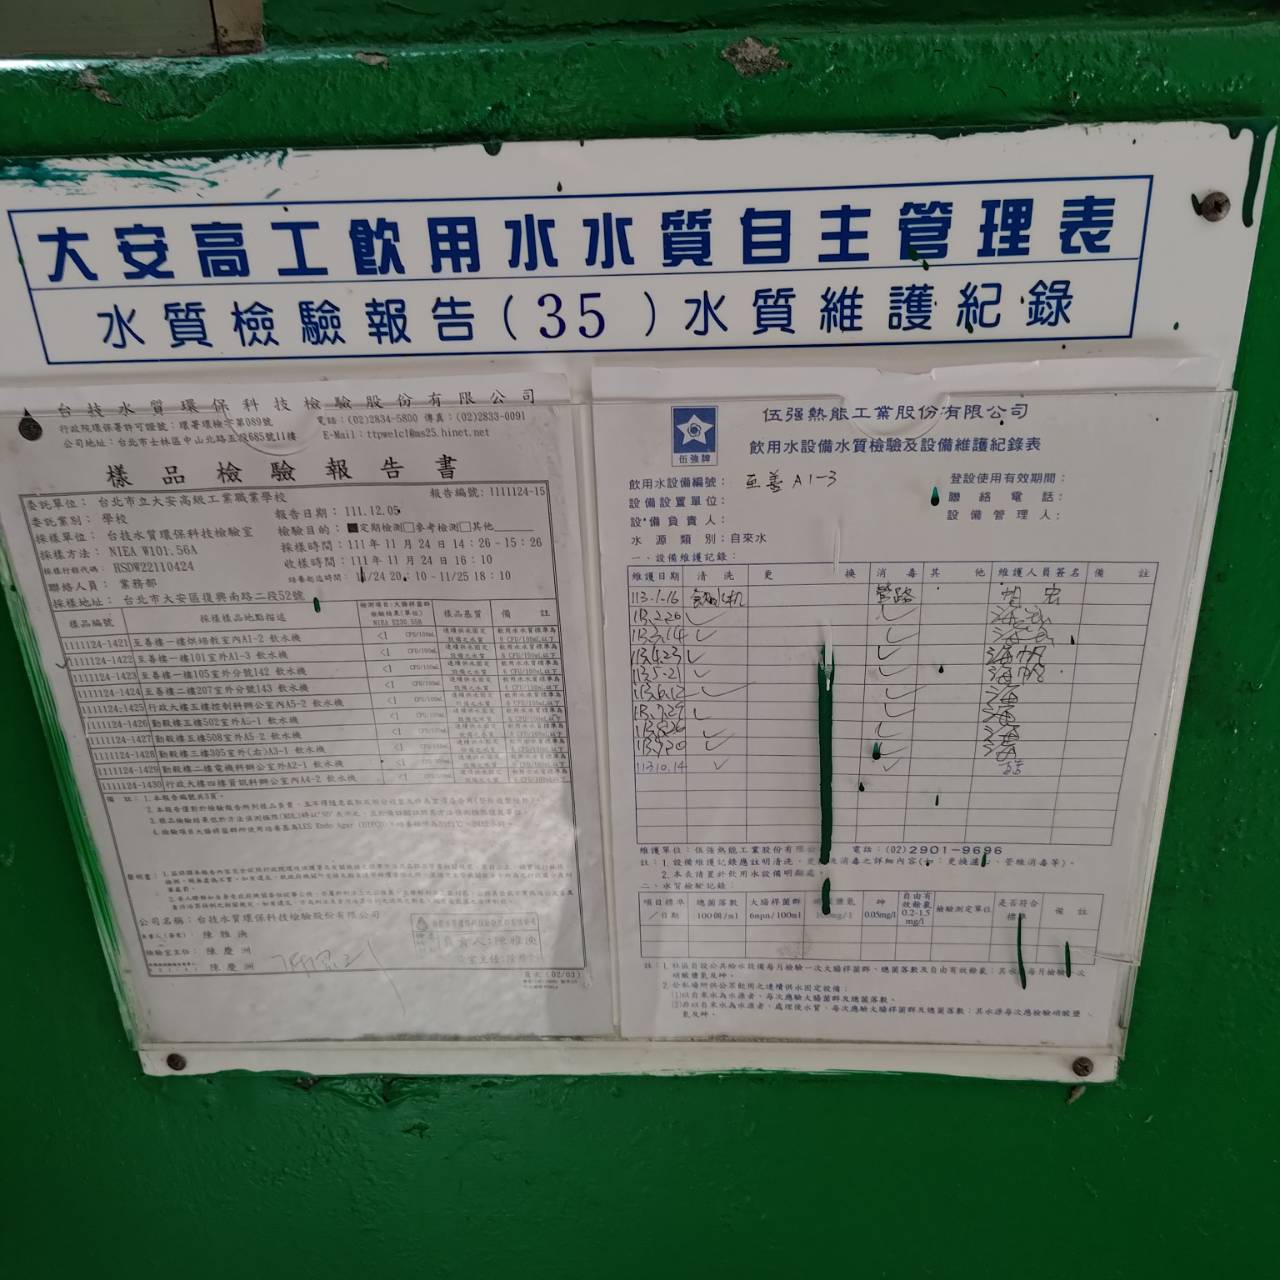 大安高工飲用水水質自主管理表
水質檢驗報告(35)水質維護紀錄
台技水質環保科技檢驗股份有限公司
行政院環保署許可證號：環署環檢字第089號 電話：(02)2834-5800 傳真：(02)2833-0091
公司地址：台北市士林區中山北路五段685號11樓 E-Mail：ttpwelcl@ms25.hinet.net
樣品檢驗報告書
委託單位：台北市立大安高級工業職業學校 報告編號：1111124-15
委託業別：學校 報告日期：111.12.05
採樣單位：台技水質環保科技檢驗室 檢驗目的：■定期檢測□參考檢測□其他
採樣方法：NIEA W101.56A 採樣時間：111年11月24日14：26-15：26
採樣行程代碼：HSDW22110424 收樣時間：111年11月24日16：10
聯絡人員：業務部
採樣地址：台北市大安區復興南路二段52號
樣品編號 採樣樣品地點描述 樣品基質 備註
1111124-1421 至善樓一樓烘焙教室內A1-2 飲水機 <1
1111124-1422 至善樓一樓101室外A1-3 飲水機 <1
1111124-1423 至善樓一樓105室外分號142 飲水機 <1
1111124-1424 至善樓二樓207室外分號143 飲水機 <1
1111124-1425 行政大樓五樓控制科辦公室內A5-2 飲水機 <1
1111124-1426 勤毅樓五樓502室外A5-1 飲水機 <1
1111124-1427 勤毅樓五樓508室外A5-2 飲水機 <1
1111124-1428 勤毅樓三樓305室外(右)A3-1 飲水機 <1
1111124-1429 勤毅樓二樓電機科辦公室外A2-1 飲水機 <1
1111124-1430 行政大樓四樓資訊科辦公室內A4-2 飲水機 <1
公司名稱：台技水質環保科技檢驗股份有限公司
陳雅渙
檢驗室主任：陳慶洲
陳慶洲
頁次(02/03)
伍強牌
伍強熱能工業股份有限公司
飲用水設備水質檢驗及設備維護紀錄表
飲用水設備編號：至善 A1-3 登設使用有效期間：
設備設置單位： 聯絡電話：
設備負責人： 設備管理人：
水源類別：自來水
一、設備維護記錄：
維護日期 清洗 更換 消毒 其他 維護人員簽名 備註
113.1.16 管路
113.2.26
113.3.14
113.4.23
113.5.21
113.6.12
113.7.29
113.8.26
113.9.20
113.10.14
維護單位：伍強熱能工業股份有限 電話：(02)2901-9696
註：1.設備維護記錄應註明清洗、更 及消毒之詳細內容(如：更換濾 、管線消毒等)。
2.本表請置於飲用水設備明顯處。
二、水質檢驗記錄：
項目標準／日期 總菌落數 100個/ml 大腸桿菌群 6mpn/100ml 砷 0.05mg/l 自由有效餘氯 0.2-1.5 mg/l 檢驗測定單位 是否符合標準 備註
註：1.社區自設公共給水設備每月檢驗一次大腸桿菌群、總菌落數及自由有效餘氯；其水 每月檢驗 次
硝酸鹽氮及砷。
2.公私場所供公眾飲用之連續供水固定設備：
(1)以自來水為水源者，每次應驗大腸菌群及總菌落數。
(2)非以自來水為水源者，處理後水質，每次應驗大腸桿菌群及總菌落數；其水源每次應檢驗硝酸鹽
氮及砷。